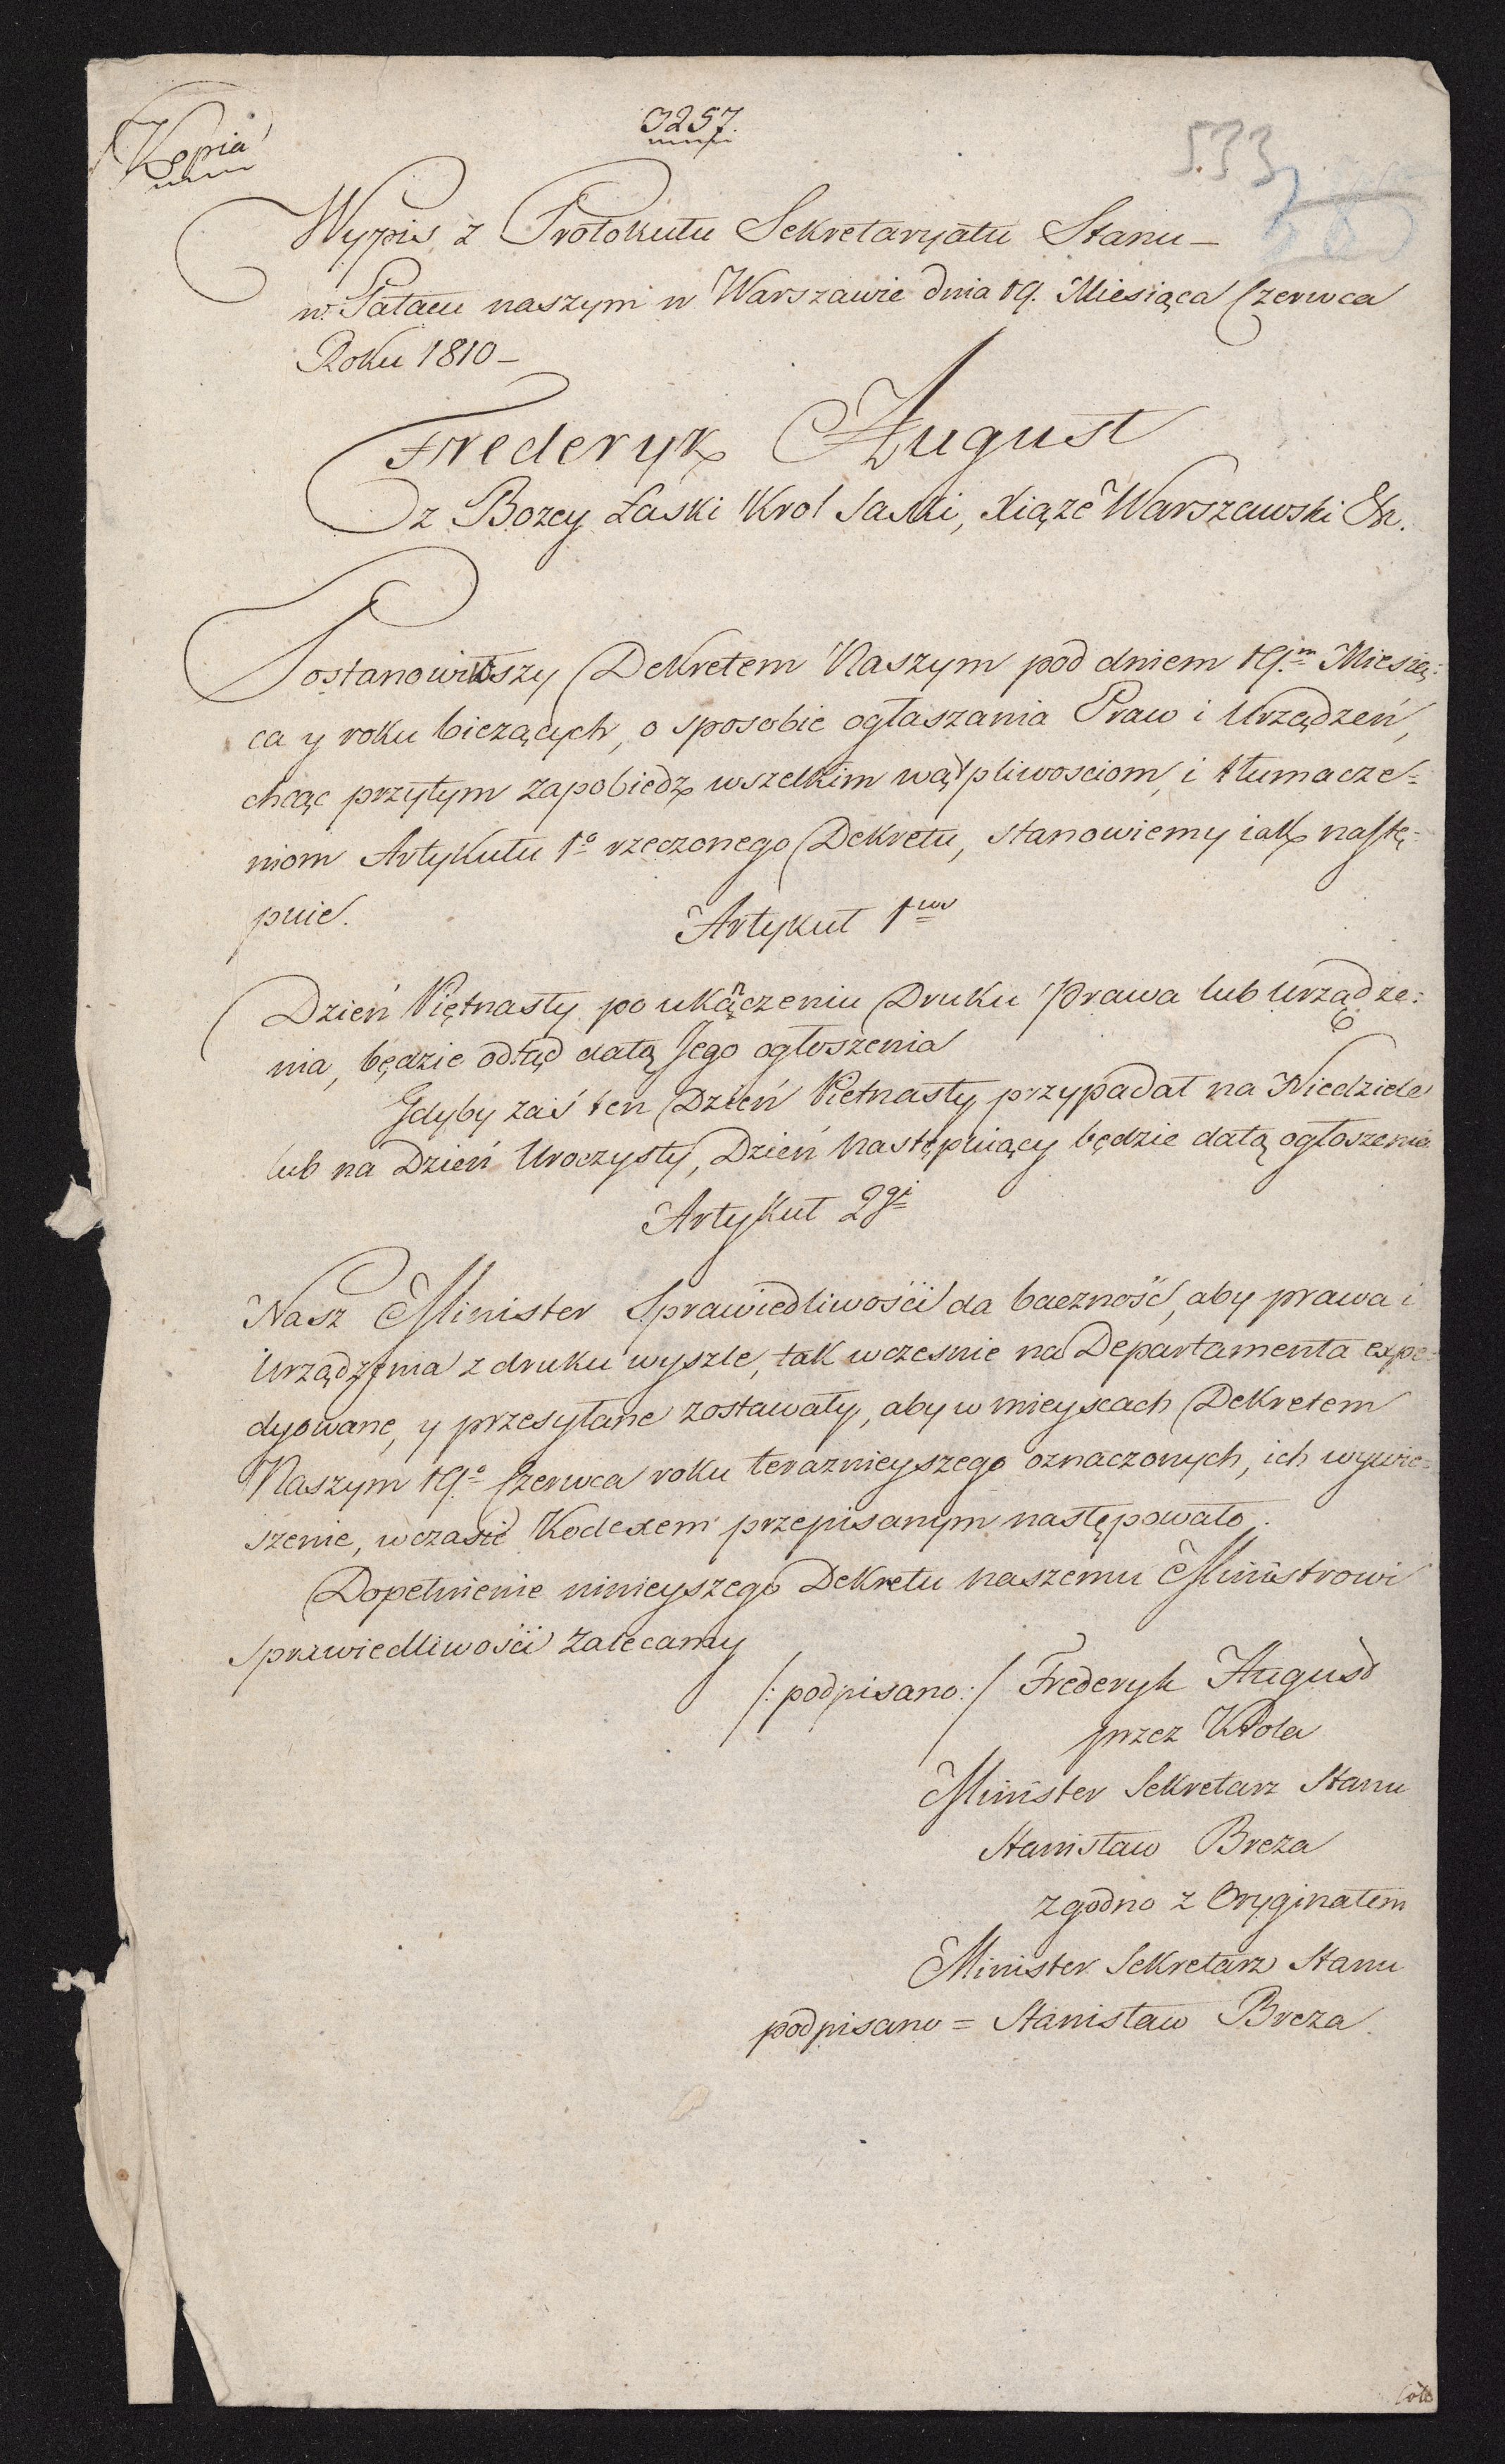 Kopia
3257.
533
Wypis z Protokułu Sekretaryatu Stanu –
w Pałacu naszym w Warszawie dnia 19. Miesiąca Czerwca
Roku 1810 –
Frederyk August
z Bozey Łaski Krol Saski, Xiąże Warszawski &c.
Postanowiwszy Dekretem Naszym pod dniem 19.m Miesią:
ca y roku bieżących, o sposobie ogłaszania Praw i Urządzeń,
chcąc przytym zapobiedz wszelkim wątpliwosciom, i tłumacze=
niom Artykułu 1o rzeczonego Dekretu, stanowiemy iak nastę=
puie.
Artykuł 1wy
Dzień Piętnasty po ukączeniu Druku Prawa lub urządze:
nia, będzie odtąd datą Jego ogłoszenia
Gdyby zaś ten Dzień Pietnasty przypadał na Niedziele
lub na Dzień Uroczysty, Dzień następuiący będzie datą ogłoszenia
Artykuł 2gi
Nasz Minister Sprawiedliwości da baczność, aby prawa i
Urządzenia z druku wyszłe, tak wczesnie na Departamenta expe=
dyowane, y przesyłane zostawały, aby w mieyscach Dekretem
Naszym 19o Czerwca roku teraznieyszego oznaczonych, ich wywie=
szenie, w czasie Kodexem przepisanym następowało.
Dopełnienie ninieyszego Dekretu naszemu Ministrowi
Sprawiedliwości zalecamy
/: podpisano :/ Frederyk August
przez Krola
Minister Sekretarz Stanu
Stanisław Breza
zgodno z Oryginałem
Minister Sekretarz Stanu
podpisano = Stanisław Breza